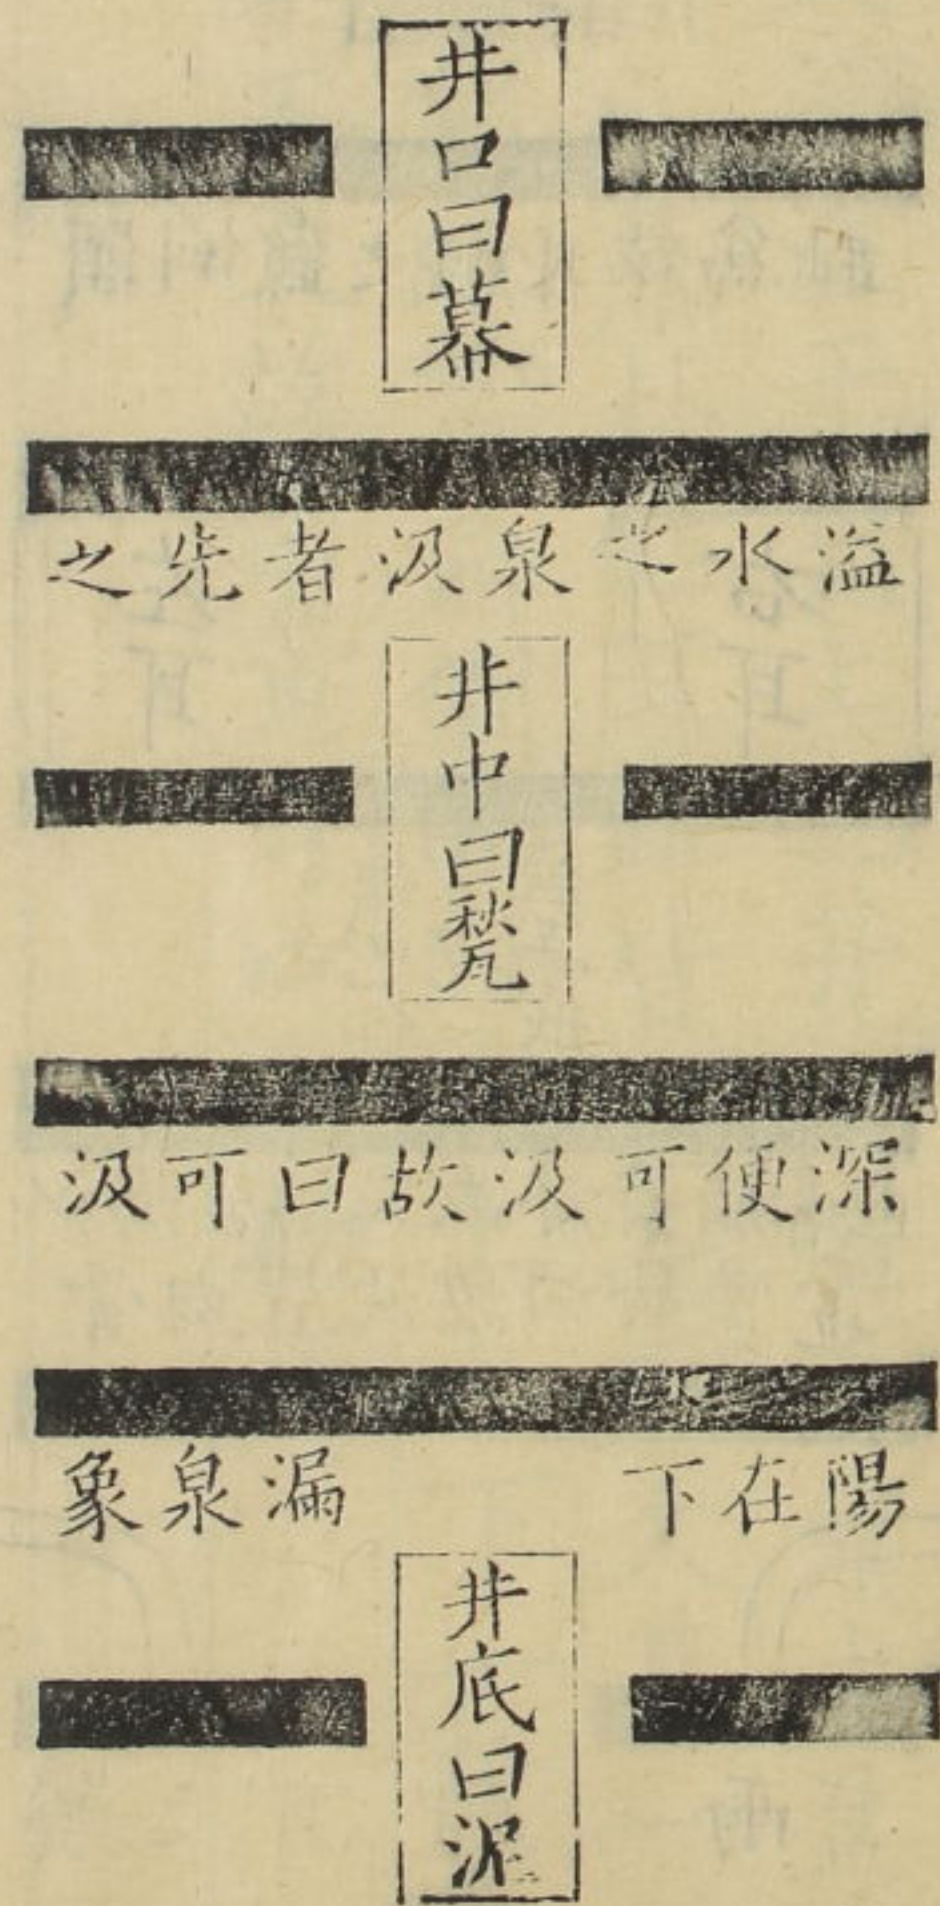 井口曰幕
溢水之泉汲者先之
井中曰甃
深便可汲故曰可汲
陽在下 漏泉象
井底曰泥